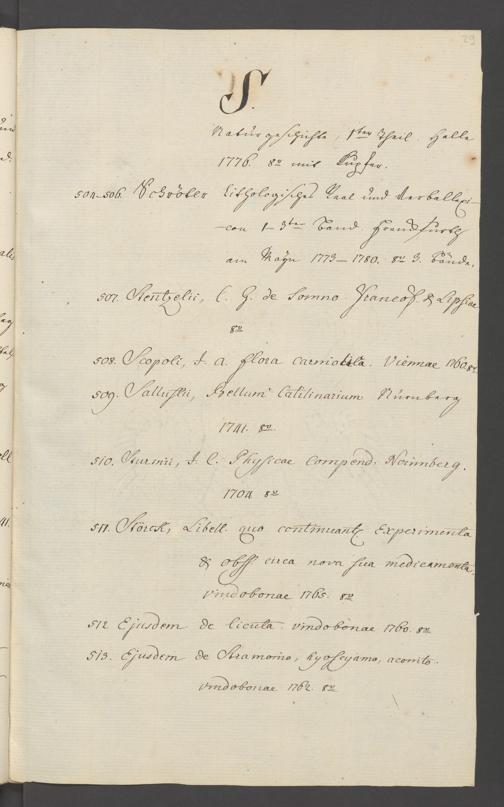 29
S.
Naturgeschichte, 1ter Theil. Halle
1776. 8o mit Kupfer.
504-506. Schröter Lithologisches Real und Verballexi-
-con 1-3ter Band Frankfurth
am Mayn 1773-1780. 8o 3. Bände.
507. Stentzelii, C. G. de Somno. Francof. & Lipsiae
8o
508. Scopoli, J. A. flora carniolica. Viennae 1760. 8o
509. Sallustii, Bellum Catilinarium Nürnberg
1741. 8o
510. Sturmii, J. C. Physicae Compend. Norimberg.
1704 8o
511. Störck, Libell. quo continuant Experimenta
& obss circa nova sua medicamenta.
Vindobonae 1765. 8o
512 Ejusdem de Cicuta. Vindobonae 1760. 8o
513. Ejusdem de Stramonio, hyosciamo, aconito.
Vindobonae 1762. 8o